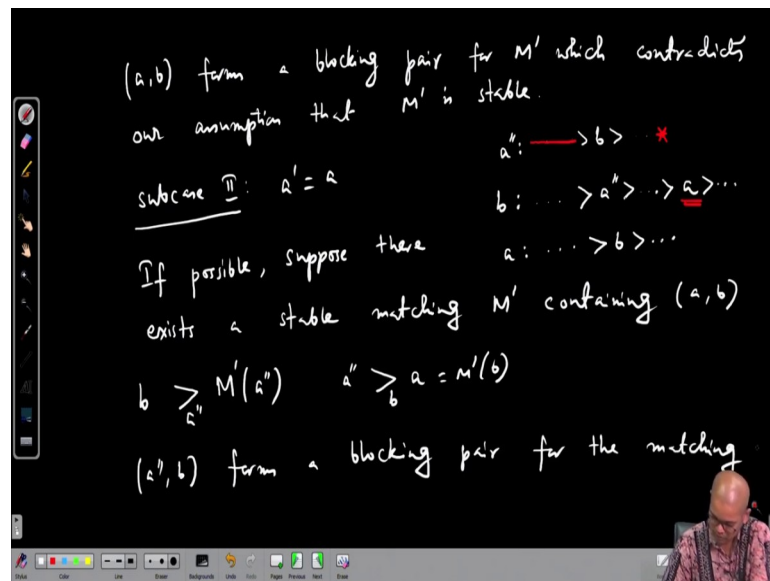 (a,b) form a blocking pair for M' which contradicts
our assumption that M' is stable.
a'': > b > ...
subcase II: a' = a
b: .... > a'' > ... > a > ...
If possible, suppose there
a: .... > b > ...
exists a stable matching M' containing (a,b)
b >_{a''} M'(a'') a'' >_b a = M'(b)
(a'', b) form a blocking pair for the matching
Stylus Color Line Eraser Backgrounds Undo Redo Pages Previous Next Erase